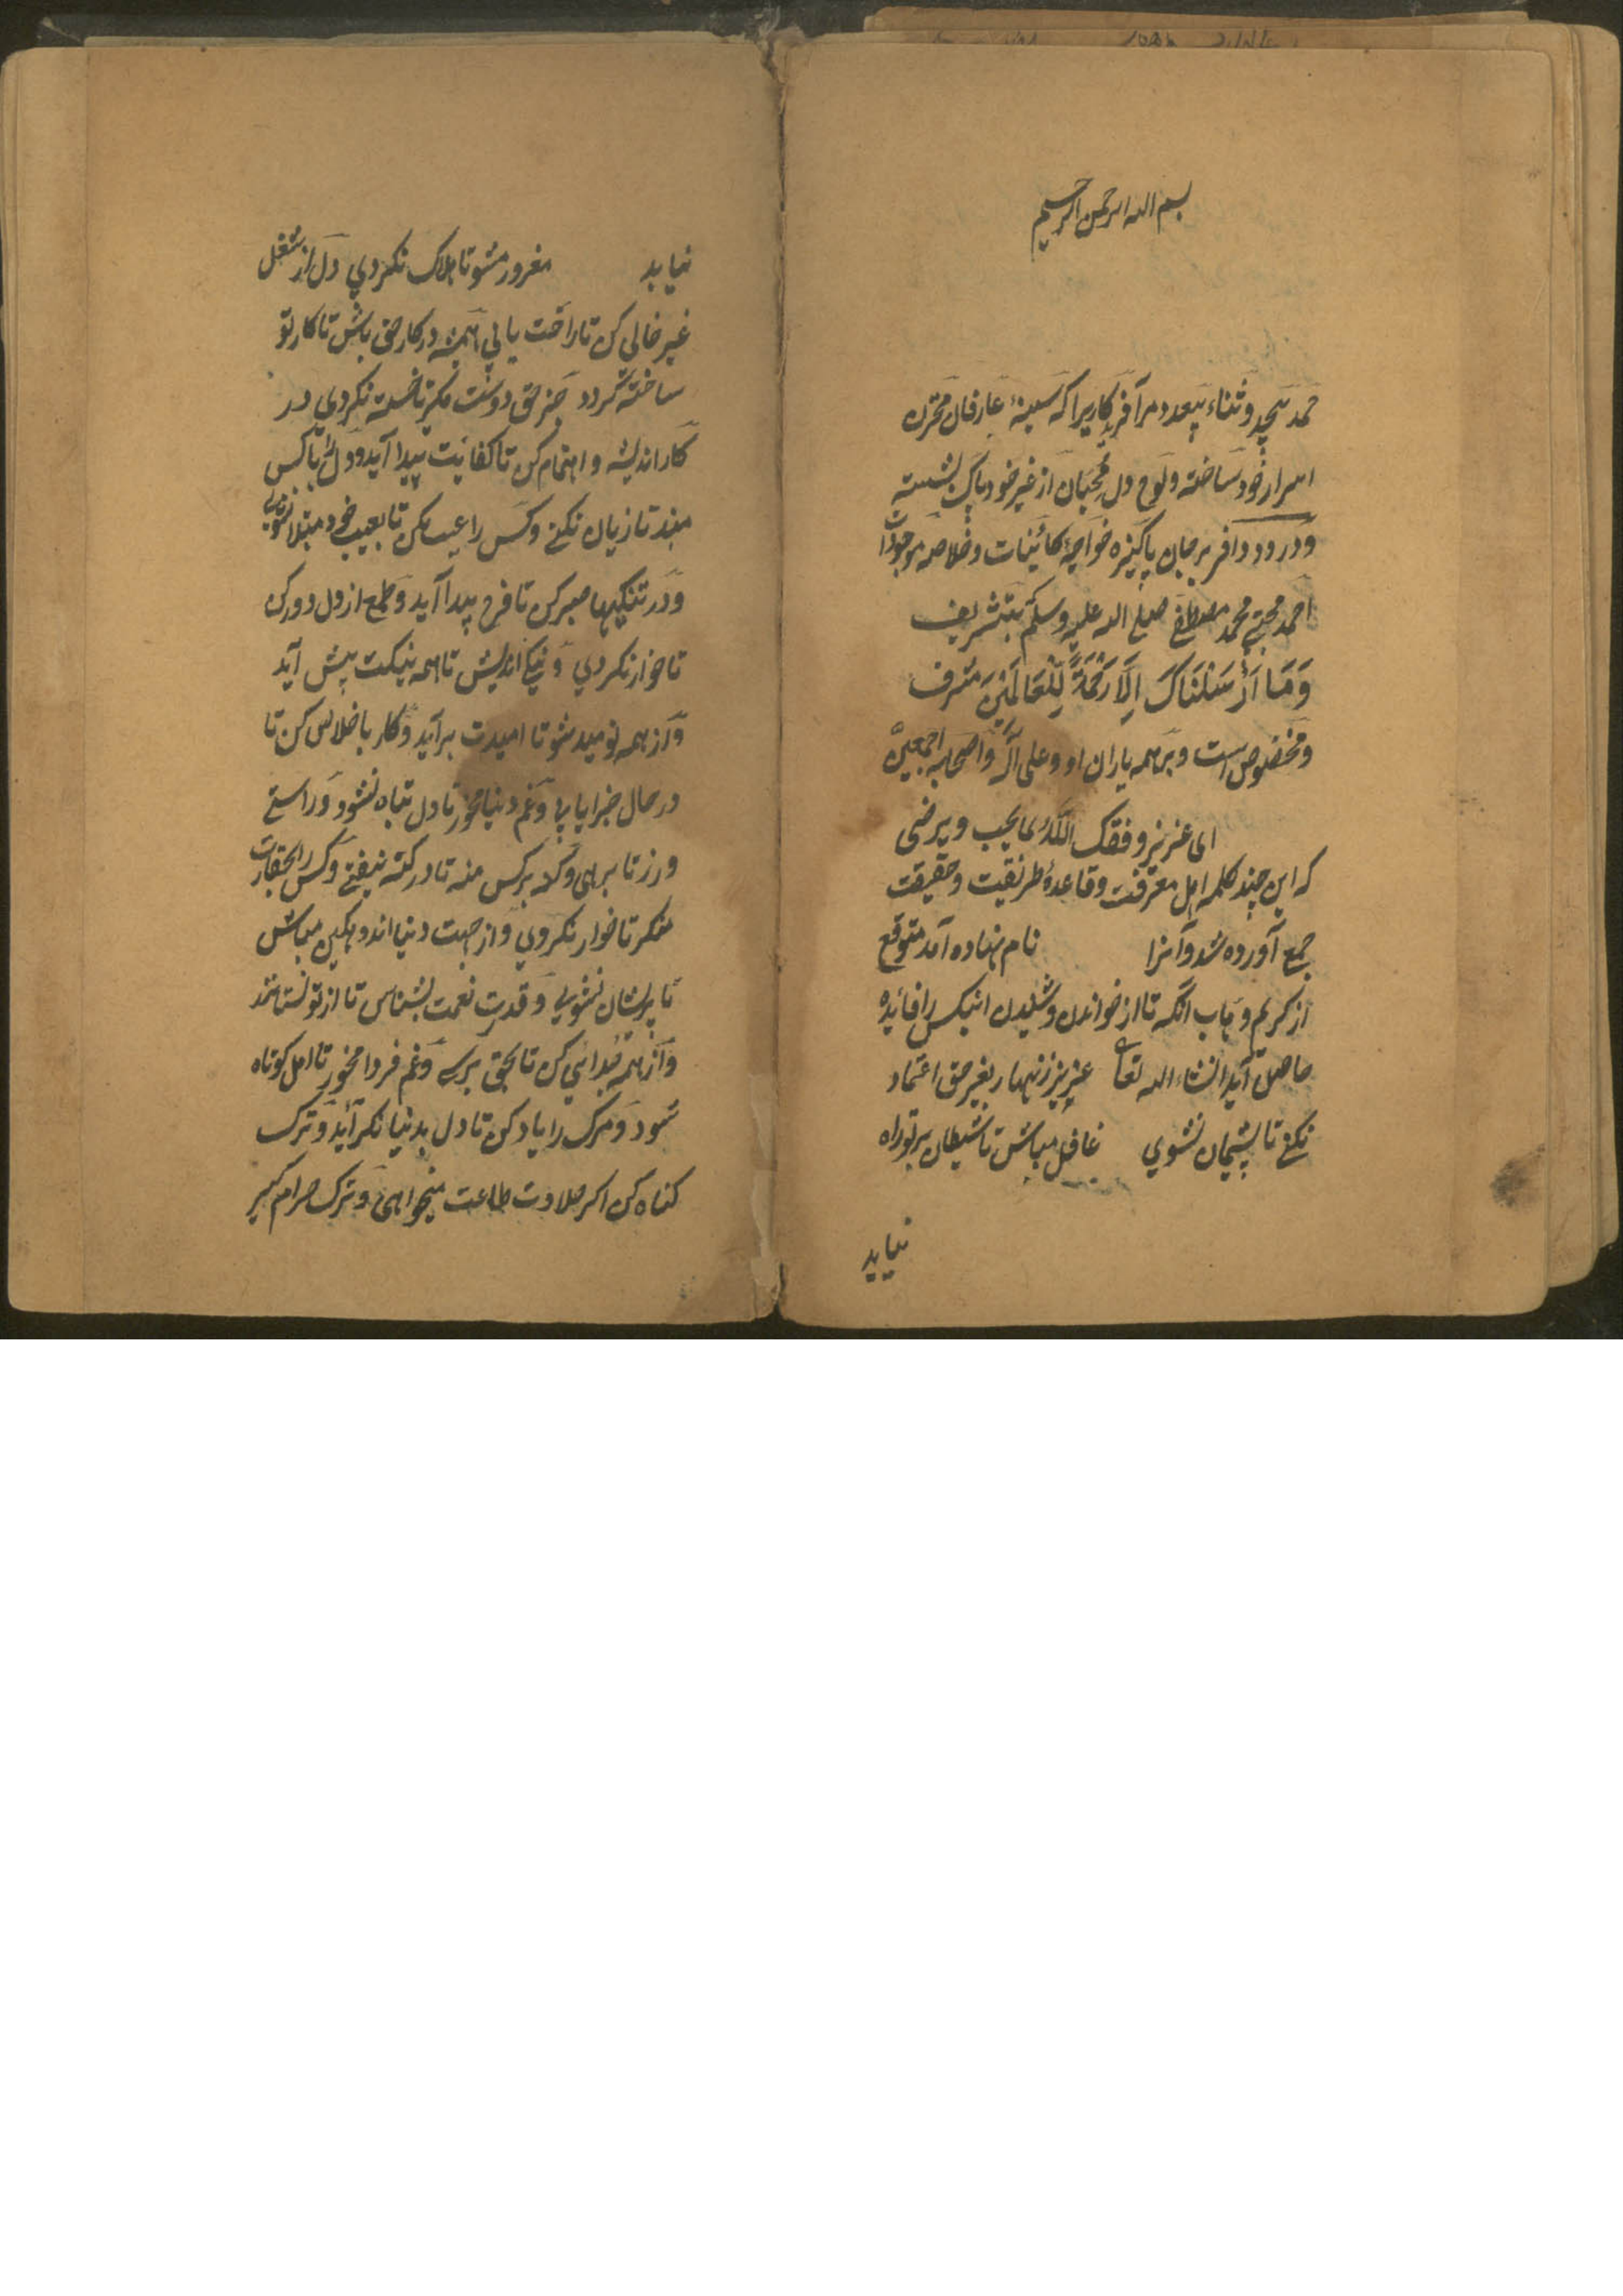 بسم الله الرحمن الرحیم
حمد بیحد و ثناء بیعدد مر آفریدکاریرا که سینهٔ عارفان مخزن
اسرار خود ساخته و لوح دل محبان از غیر خود پاک بشسته
و درود وافر بر جان پاکیزه خواجهٔ کائنات و خلاصه موجودات
احمد مجتبی محمد مصطفی صلی الله علیه وسلم بتشریف
وَمَا أَرْسَلْنَاكَ اِلَّا رَحْمَةً لِّلْعَالَمِیْنَ مشرف
و مخصوص است و بر همه یاران او و علی آله و اصحابه اجمعین
ای عزیز وفقک الله بما یحب و یرضی
که این چند کلمه اهل معرفت و قاعدهٔ طریقت و حقیقت
جمع آورده شد و آنرا نام نهاده آمد متوقع
از کریم وهاب آنکه تا از خواندن و شنیدن اینکس را فائده
حاصل آید انشاء الله تعا عزیز زنهار بغیر حق اعتماد
نکنی تا پشیمان نشوی غافل مباش تا شیطان بر تو راه
نیابد
نیابد مغرور مشو تا هلاک نکردی دل از شغل
غیر خالی کن تا راحت یابی همیشه در کار حق باش تا کار تو
ساخته کردد جز حق دوست مکیر تا خسته نکردی در
کار اندیشه و اهتمام کن تا کفایت پیدا آید و دل با کس
مبند تا زیان نکنی و کس را عیب مکن تا بعیب خود مبتلا نشوی
و در تنکیها صبر کن تا فرح پیدا آید و طمع از دل دور کن
تا خوار نکردی و نیک اندیش تا همه نیکت پیش آید
و از همه نومید شو تا امیدت برآید و کار باخلاص کن تا
در حال جزا یابی و غم دنیا مخور تا دل تباه نشود و راستی
ورز تا برهی و کس را بحقارت
منکر تا خوار نکردی و از جهت دنیا اندوهکین مباش
تا پریشان نشوی و قدرت نعمت بشناس تا از تو نستانند
و از همه جدائی کن تا بحق برسی و غم فردا مخور تا امل کوتاه
شود و مرک را یاد کن تا دل بدنیا نکرآید و ترک
کناه کن اکر حلاوت طاعت میخواهی و ترک حرام کیر